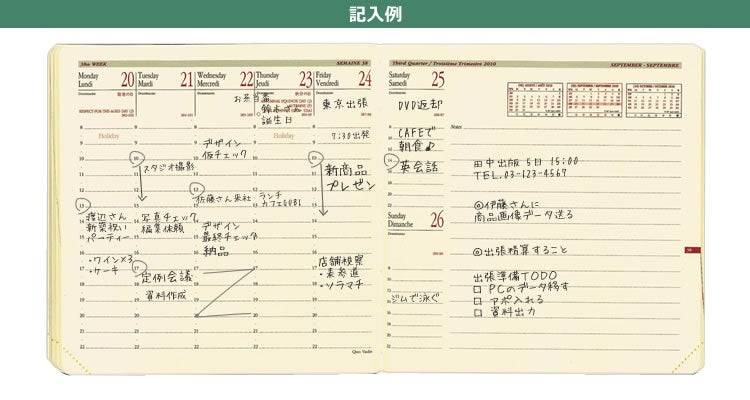 記入例
38th WEEK
SEMAINE 38
Monday
Lundi
20
Dominante
RESPECT-FOR-THE-AGED DAY (J)
Holiday
渡辺さん
新築祝い
パーティー
・ワイン×3
・ケーキ
Tuesday
Mardi
21
Dominante
スタジオ撮影
写真チェック
編集依頼
定例会議
資料作成
Wednesday
Mercredi
22
Dominante
お弁当箱
デザイン
仮チェック
佐藤さん来社
デザイン
最終チェック
納品
Thursday
Jeudi
23
Dominante
誕生日
Holiday
ランチ
カフェGUBI
Friday
Vendredi
24
Dominante
東京出張
7:30出発
新商品
プレゼン
店舗視察
・表参道
・ソラマチ
Quo Vadis
Third Quarter / Troisième Trimestre 2010
SEPTEMBER - SEPTEMBRE
Saturday
Samedi
25
Dominante
DVD返却
CAFEで
朝食♪
英会話
Sunday
Dimanche
26
Dominante
ジムで泳ぐ
Notes
田中出版 5日 15:00
TEL.03-123-4567
@伊藤さんに
商品画像データ送る
@出張精算すること
出張準備TODO
□ PCのデータ移す
□ アポ入れる
□ 資料出力